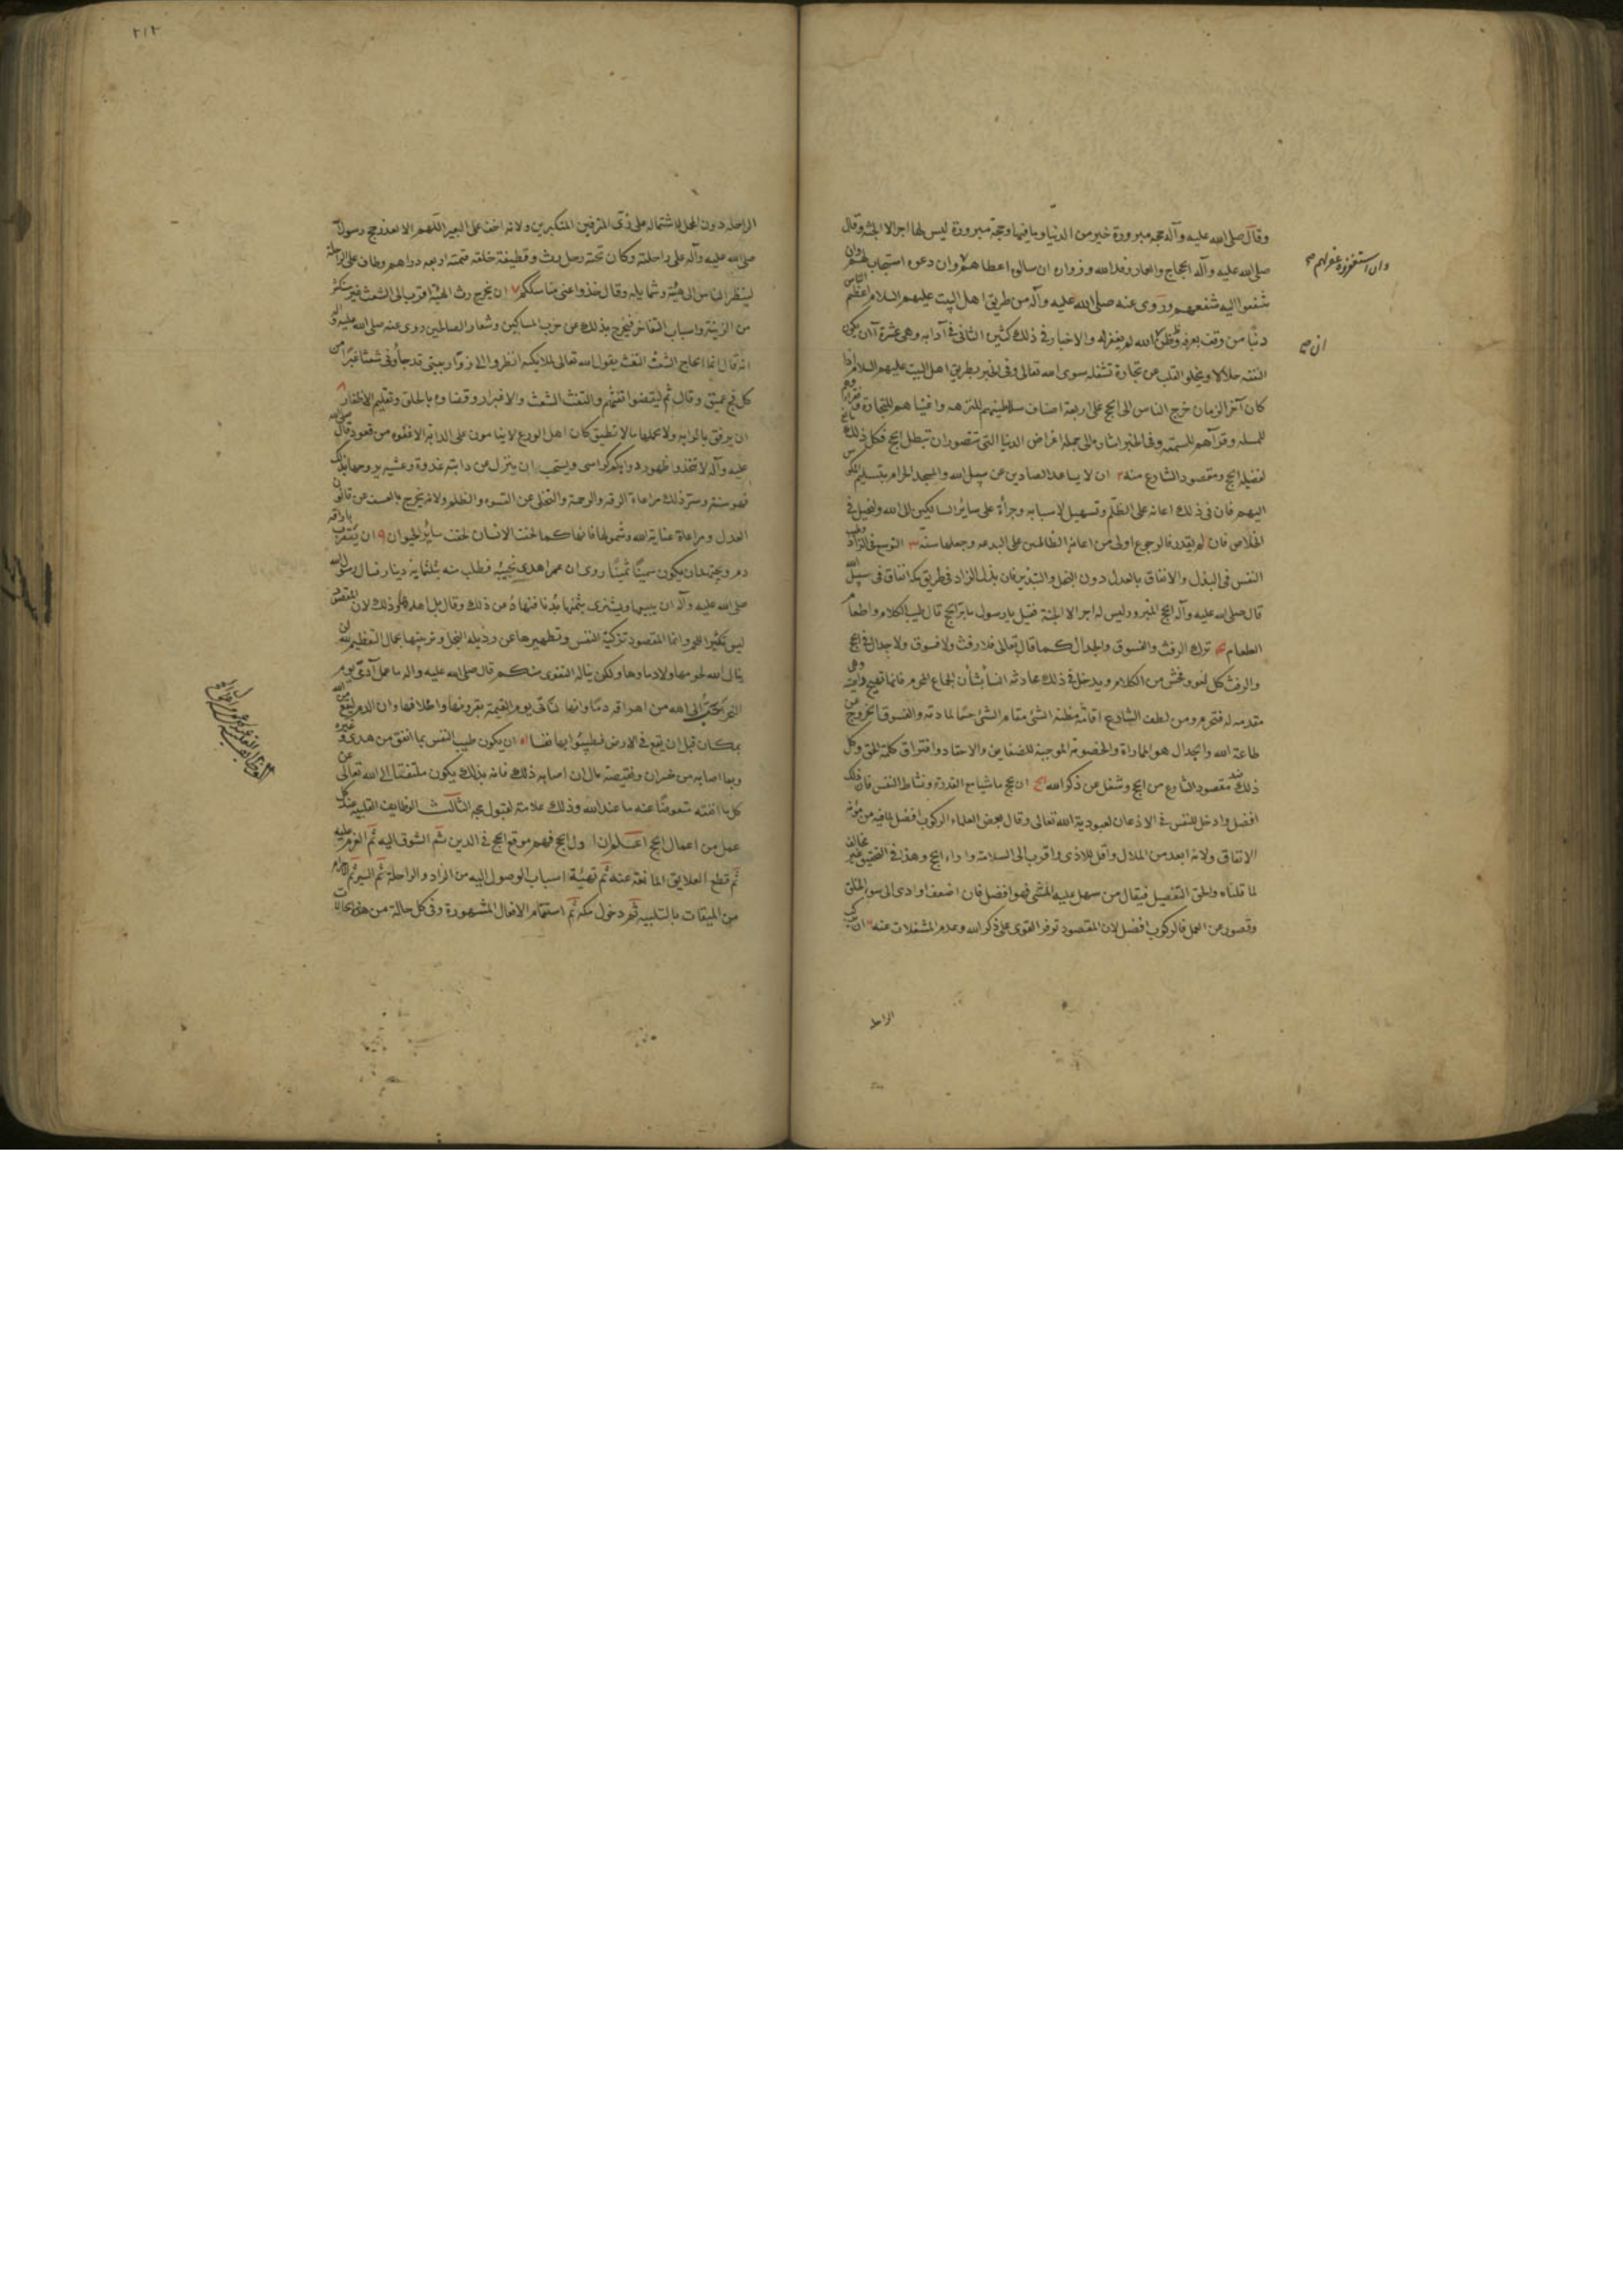 وقال صلى الله عليه وآله حجه مبرورة خير من الدنيا وما فيها وحجة مبرورة ليس لها اجر الا الجنة وقال
صلى الله عليه وآله الحجاج والعمار وفد الله وزواره ان سالوه اعطاهم وان دعوه استجاب لهم وان
شفعوا اليه شفعهم وروى عنه صلى الله عليه وآله من طريق اهل البيت عليهم السلام اعظم الناس
ذنبا من وقف بعرفه وظن الله لم يغفر له والاخبار فى ذلك كثيرة الثانى فى آدابه وهى عشرة آ ان يكون
النفقه حلالا ويخلو القلب عن تجارة تشغله سوى الله تعالى وفى الخبر بطريق اهل البيت عليهم السلام اذا
كان آخر الزمان خرج الناس الى الحج على اربعة اصناف سلاطينهم للنزهه واغنياهم للتجارة وفقراءهم
للمسله وقرآهم للسمعه وفى الخبر اشارة الى جمله اغراض الدنيا التى تتصور ان تبطل الحج فكل ذلك مانع
لفضيلة الحج ومقصود الشارع منه ٢ ان لا يساعد الصادين عن سبيل الله والمسجد الحرام بتسليم المكوس
اليهم فان فى ذلك اعانه على الظلم وتسهيل لاسبابه وجرأة على ساير السالكين الى الله وليحتل فى
الخلاص فان لم يقدر فالرجوع اولى من اعانة الظالمين على البدعه وجعلها سنة ٣ التوسع فى الزاد وطيب
النفس فى البذل والانفاق بالعدل دون البخل والتبذير فان بذل الزاد فى طريق مكة انفاق فى سبيل الله
قال صلى الله عليه وآله الحج المبرور ليس له اجر الا الجنة فقيل يا رسول ما بر الحج قال طيب الكلام واطعام
الطعام ۴ ترك الرفث والفسوق والجدال كما قال تعالى فلا رفث ولا فسوق ولا جدال فى الحج
والرفث كل لغو وفحش من الكلام ويدخل فى ذلك محادثة النسا بشأن الجماع المحرم فانها تهيج داعيته وهى
مقدمه له فتحرم ومن لطف الشارع اقامة مظنة الشئ مقام الشئ حسما لمادته والفسوق الخروج عن
طاعة الله والجدال هو المماراة والخصومة الموجبة للضغاين والاحقاد وافتراق كلمة الحق وكل
ذلك ضد مقصود الشارع من الحج وشغل عن ذكر الله ان يحج ماشيا مع القدرة ونشاط النفس فان ذلك
افضل وادخل للنفس فى الاذعان لعبودية الله تعالى وقال بعض العلماء الركوب افضل لما فيه من مؤنة
الانفاق ولانه ابعد من الملال واقل للاذى واقرب الى السلامة واداء الحج وهذا فى التحقيق غير مخالف
لما قلناه والحق التفصيل فيقال من سهل عليه المشى فهو افضل فان اضعف وادى الى سوء الخلق
وقصور عن العمل فالركوب افضل لان المقصود توفر القوى على ذكر الله وعدم المشغلات عنه ان يركب
الراحلة
وان استغفروه غفر لهم صح
ان صح
٢١٢
الراحله دون المحمل لاشتماله على زى المترفين المتكبرين ولانه اخف على البعير اللهم الا لعذر حج رسول الله
صلى الله عليه وآله على راحلته وكان تحته رحل رث وقطيفة خلقه قيمته اربعه دراهم وطاف على الراحلة
لينظر الناس الى هيئته وشمايله وقال خذوا عنى مناسككم ٧ ان يخرج رث الهيئة اقرب الى الشعث غير مستكثر
من الزينة واسباب التفاخر فيخرج بذلك عن حزب المساكين وشعار الصالحين روى عنه صلى الله عليه وآله
انه قال انما الحاج الشعث التفث يقول الله تعالى لملايكته انظروا الى زوار بيتى قد جاؤنى شعثا غبرا من
كل فج عميق وقال ثم ليقضوا تفثهم والتفث الشعث والاغبرار وقضاوه بالحلق وتقليم الاظفار ٨
ان يرفق بالدابه ولا يحملها ما لا تطيق كان اهل الورع لا ينامون على الدابة الا غفوه من قعود قال صلى الله
عليه وآله لا تتخذوا ظهور دوابكم كراسى ويستحب ان ينزل عن دابته غدوة وعشيه يروحها بذلك
فهو سنة وسر ذلك مراعاة الرقة والرحمة والتخلى عن القسوة والظلم ولانه يخرج بالعسف عن قانون
العدل ومراعاة عناية الله وشمولها فانها كما لحقت الانسان لحقت ساير الحيوان ٩ ان يتقرب باراقة
دم ويجتهد ان يكون سمينا ثمينا روى ان عمر اهدى نجيبة فطلب منه بثلثماية دينار فسال رسول الله
صلى الله عليه وآله ان يبيعها ويشترى بثمنها بدنا فنهاه عن ذلك وقال بل اهدها وذلك لان المقصود
ليس تكثير اللحم وانما المقصود تزكية النفس وتطهيرها عن رذيلة البخل وتزيينها بجمال التعظيم لله لن
ينال الله لحومها ولا دماوها ولكن يناله التقوى منكم قال صلى الله عليه وآله ما عمل آدمى يوم
النحر احب الى الله من اهراقه دما وانها لتأتى يوم القيمة بقرونها واظلافها وان الدم ليقع من الله
بمكان قبل ان يقع فى الارض فطيبوا بها نفسا ان يكون طيب النفس بما انفق من هدى وغيره
وبما اصابه من خسران ونقيصة مال ان اصابه ذلك فانه بذلك يكون ملتفتا الى الله تعالى عن
كل ما انفقه متعوضا عنه ما عند الله وذلك علامة لقبول حجه الثالث الوظايف القلبيه عند كل
عمل من اعمال الحج اعلم ان اول الحج فهم موقع الحج فى الدين ثم الشوق اليه ثم العزم عليه
ثم قطع العلايق المانعة عنه ثم تهيئة اسباب الوصول اليه من الزاد والراحلة ثم السير ثم الاحرام
من الميقات بالتلبيه ثم دخول مكه ثم استتمام الافعال المشهورة وفى كل حالة من هذه الحالات